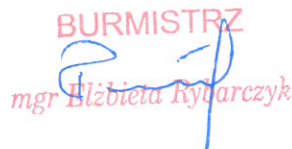 BURMISTRZ
mgr Elżbieta Rybarczyk